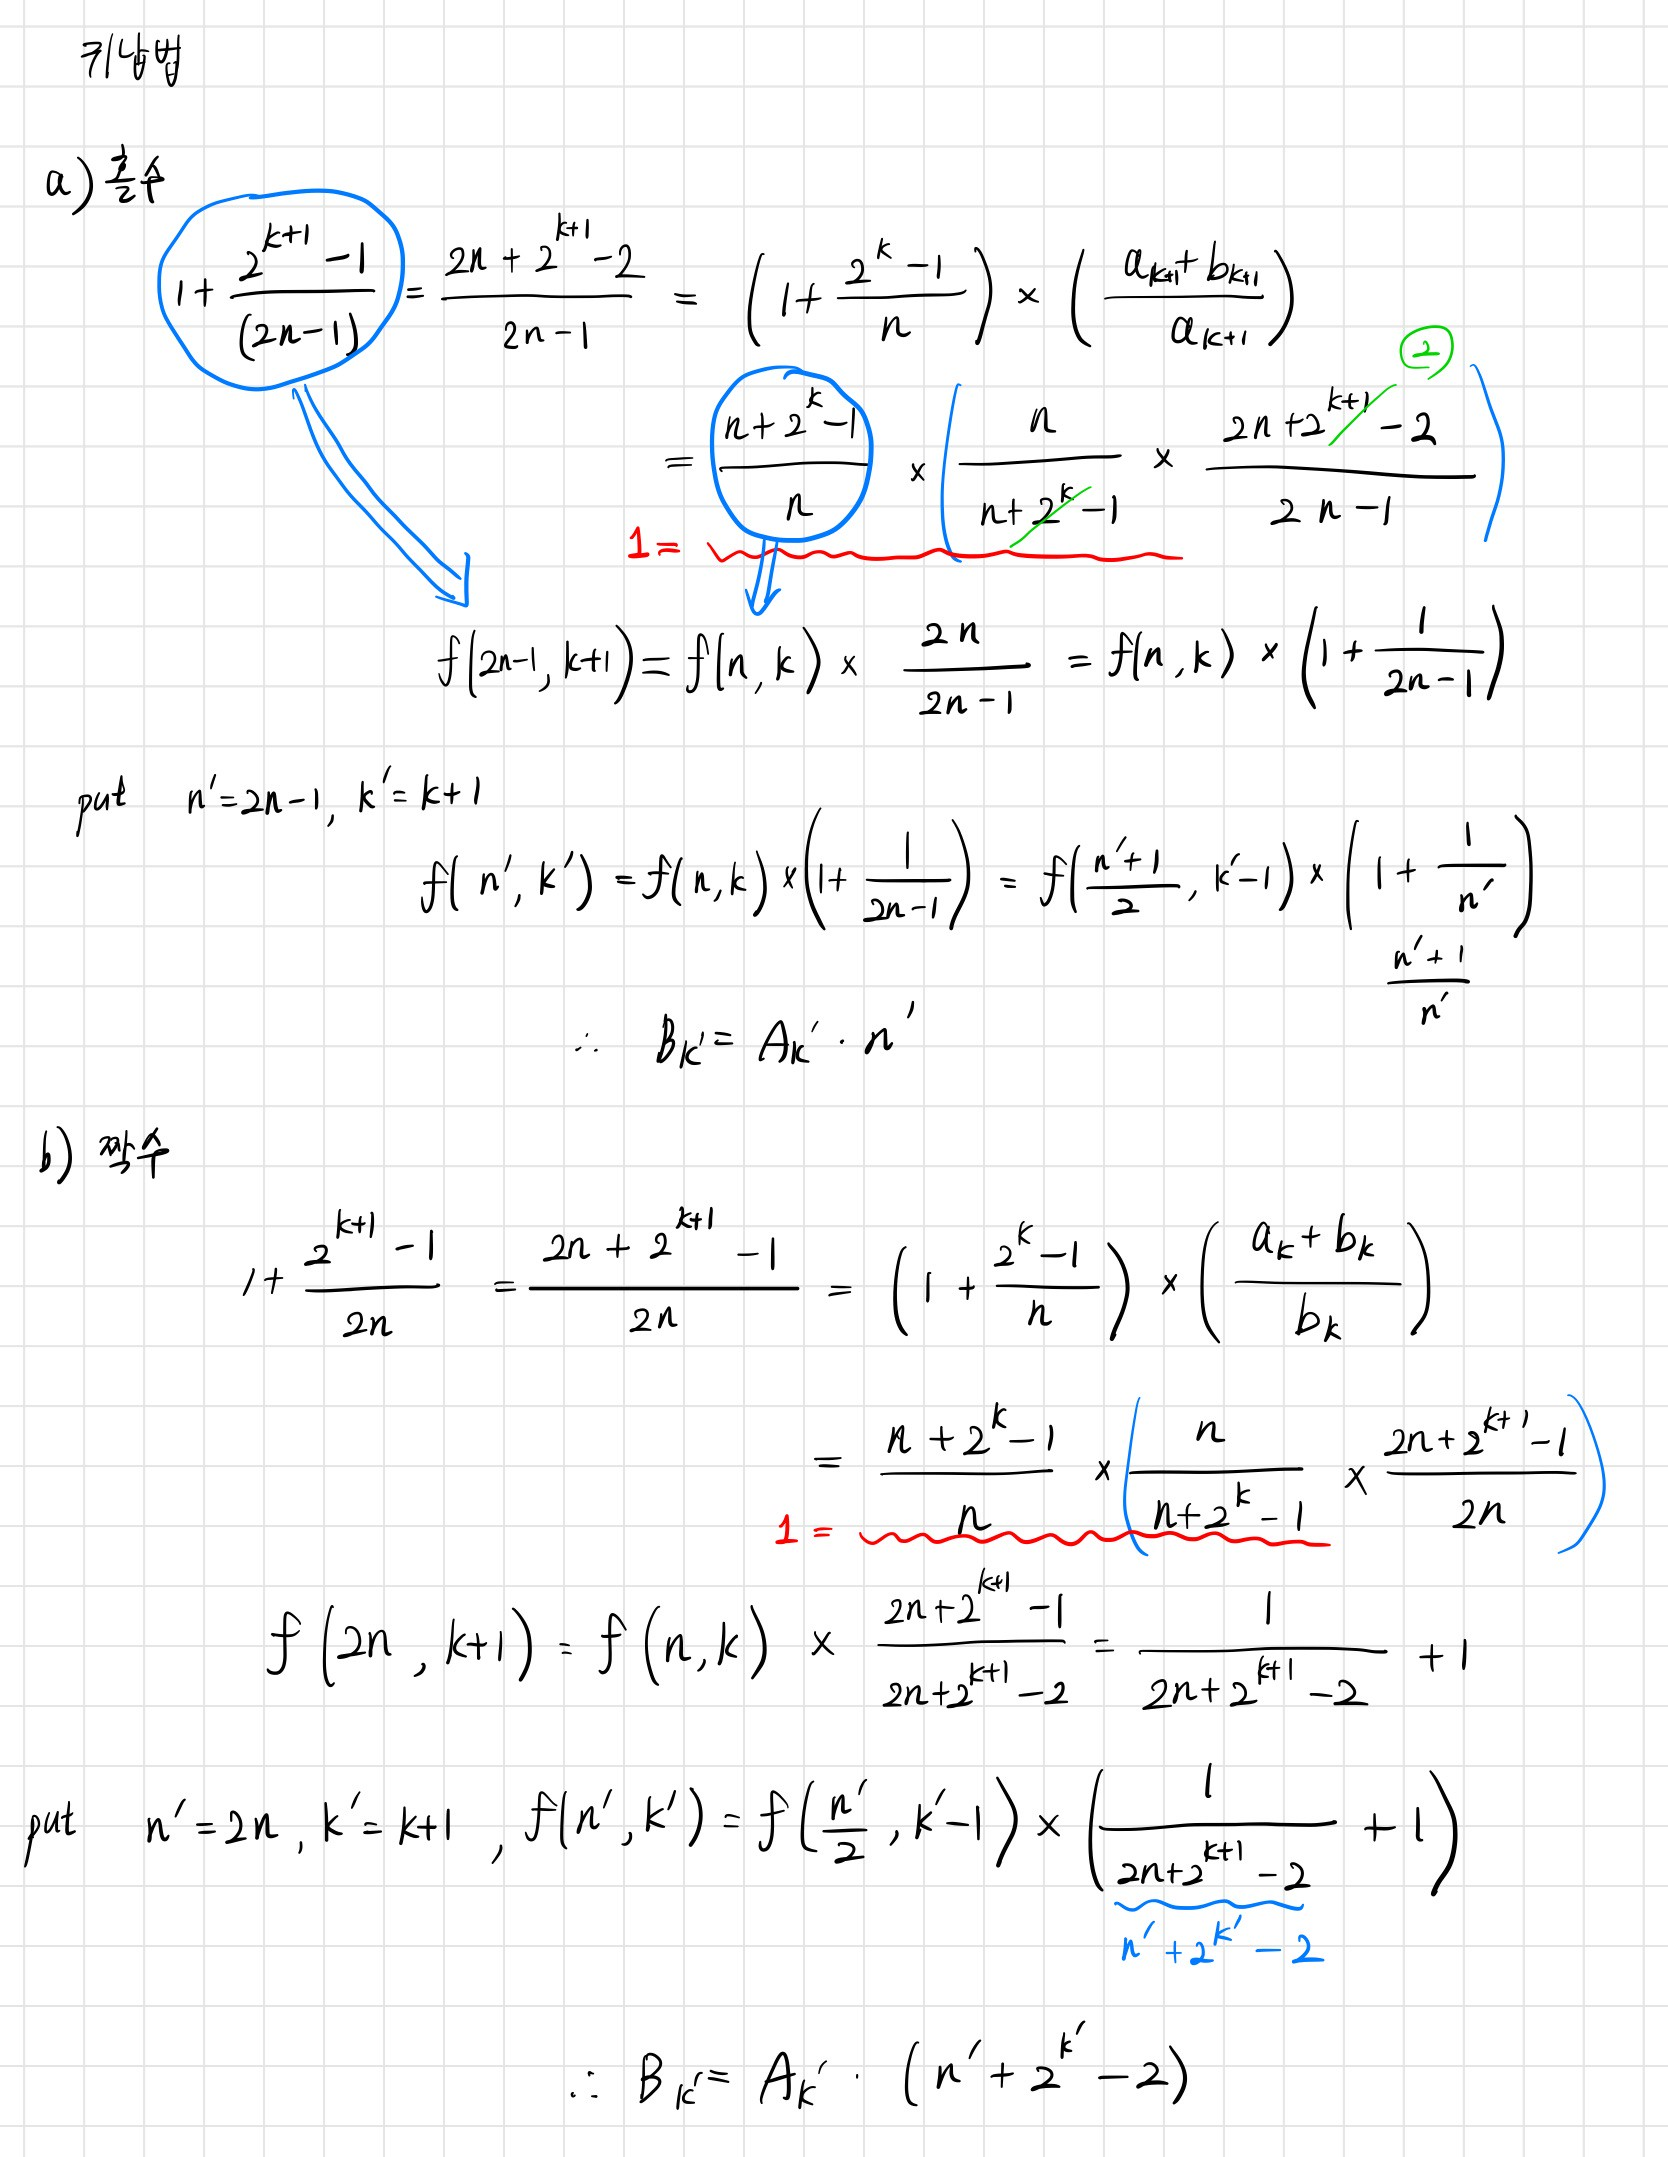 귀납법
a) 홀수
1 + \frac{2^{k+1} - 1}{(2n-1)} = \frac{2n + 2^{k+1} - 2}{2n-1} = (1 + \frac{2^k - 1}{n}) × (\frac{a_{k+1} + b_{k+1}}{a_{k+1}})
= \frac{n + 2^k - 1}{n} × (\frac{n}{n + 2^k - 1} × \frac{2n + 2^{k+1} - 2}{2n-1}) 2
1 =
f(2n-1, k+1) = f(n, k) × \frac{2n}{2n-1} = f(n, k) × (1 + \frac{1}{2n-1})
put n' = 2n-1, k' = k+1
f(n', k') = f(n, k) × (1 + \frac{1}{2n-1}) = f(\frac{n'+1}{2}, k'-1) × (1 + \frac{1}{n'})
\frac{n'+1}{n'}
∴ B_{k'} = A_{k'} · n'
b) 짝수
1 + \frac{2^{k+1} - 1}{2n} = \frac{2n + 2^{k+1} - 1}{2n} = (1 + \frac{2^k - 1}{n}) × (\frac{a_k + b_k}{b_k})
= \frac{n + 2^k - 1}{n} × (\frac{n}{n + 2^k - 1} × \frac{2n + 2^{k+1} - 1}{2n})
1 =
f(2n, k+1) = f(n, k) × \frac{2n + 2^{k+1} - 1}{2n + 2^{k+1} - 2} = \frac{1}{2n + 2^{k+1} - 2} + 1
put n' = 2n, k' = k+1, f(n', k') = f(\frac{n'}{2}, k'-1) × (\frac{1}{2n + 2^{k+1} - 2} + 1)
n' + 2^{k'} - 2
∴ B_{k'} = A_{k'} · (n' + 2^{k'} - 2)